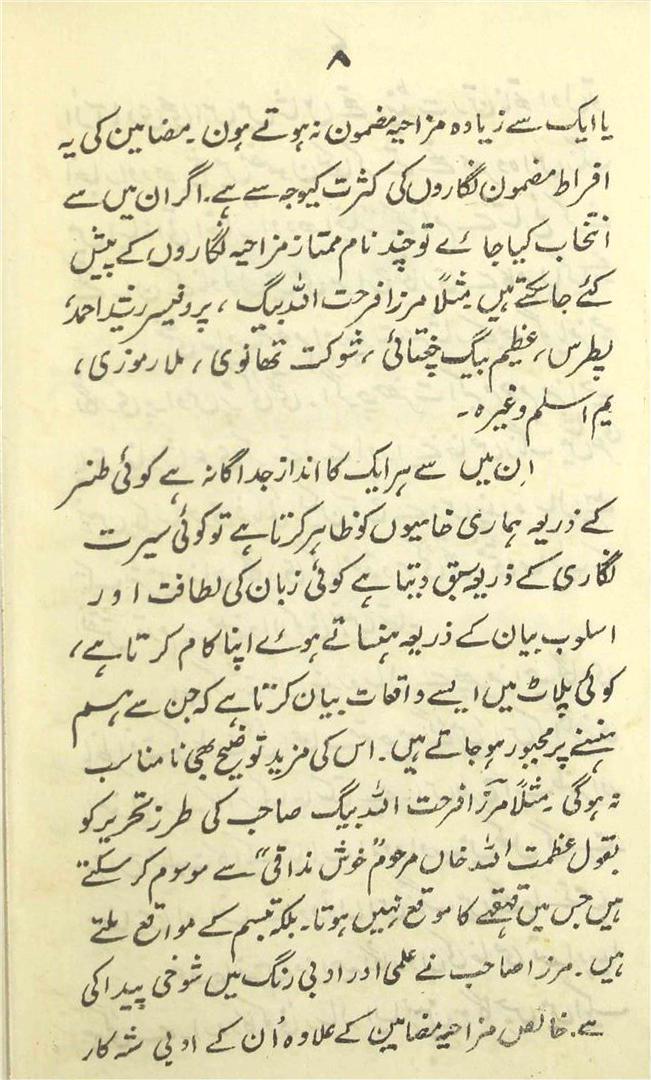 ۸
یا ایک سے زیادہ مزاحیہ مضمون نہ ہوتے ہون۔ مضامین کی یہ
افراط مضمون نگاروں کی کثرت کیوجہ سے ہے۔ اگر ان میں سے
انتخاب کیا جاۓ تو چند نام ممتاز مزاحیہ نگاروں کے پیش
کئے جا سکتے ہیں۔ مثلاً مرزا فرحت اللہ بیگ ، پروفیسر رشید احمد،
پطرس، عظیم بیگ چغتائی ، شوکت تھانوی ، ملا رموزی ،
یم اسلم وغیرہ ۔
اِن میں سے ہر ایک کا انداز جداگانہ ہے کوئی طنز
کے ذریعہ ہماری خامیوں کو ظاہر کرتا ہے تو کوئی سیرت
نگاری کے ذریعہ سبق دیتا ہے کوئی زبان کی لطافت اور
اسلوب بیان کے ذریعہ ہنساتے ہوۓ اپنا کام کرتا ہے،
کوئی پلاٹ میں ایسے واقعات بیان کرتا ہے کہ جن سے ہم
ہنسنے پر مجبور ہو جاتے ہیں۔ اس کی مزید توضیح بھی نامناسب
نہ ہوگی ۔ مثلاً مرزا فرحت اللہ بیگ صاحب کی طرز تحریر کو
بقول عظمت اللہ خاں مرحوم "خوش مذاقی" سے موسوم کر سکتے
ہیں جس میں قہقہے کا موقع نہیں ہوتا۔ بلکہ تبسم کے مواقع ملتے
ہیں۔ مرزا صاحب نے علمی اور ادبی رنگ میں شوخی پیدا کی
ہے۔ خالص مزاحیہ مضامین کے علاوہ اُن کے ادبی شہ کار